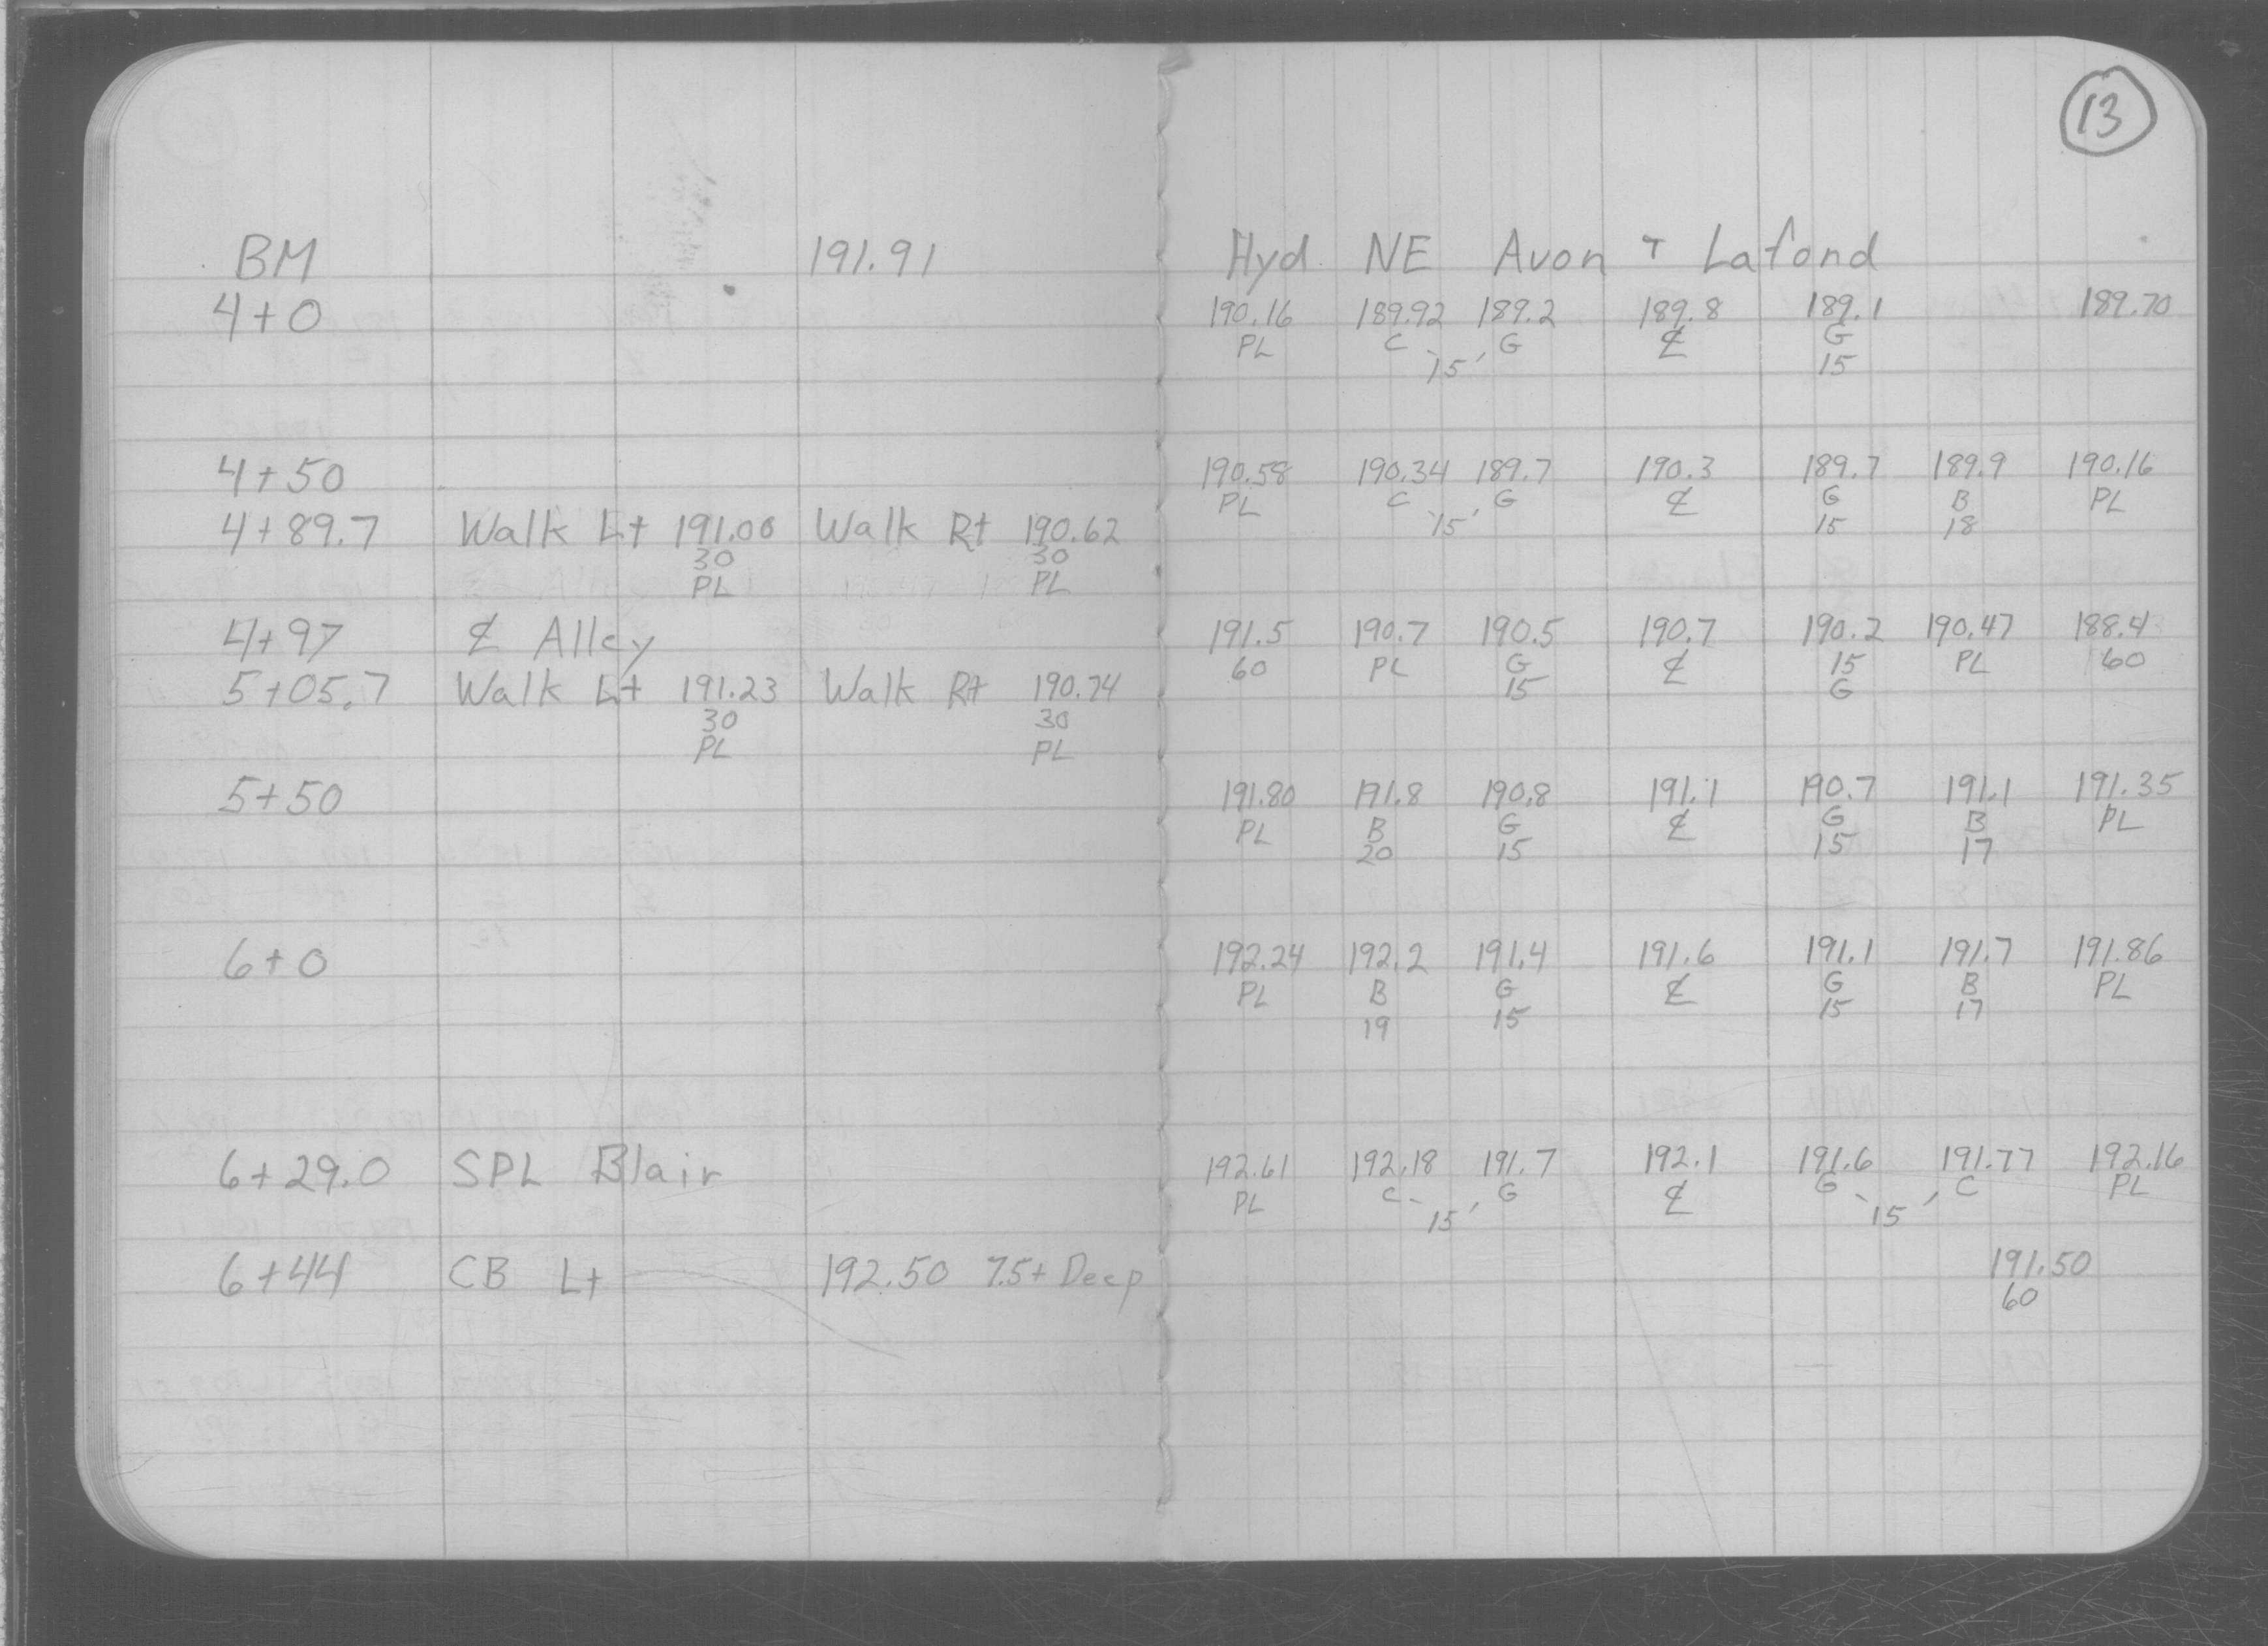 13
BM 191.91 Hyd NE Avon + Lafond
4+0 190.16 189.92 189.2 189.8 189.1 189.70
PL C G ℄ G
15 15
4+50 190.58 190.34 189.7 190.3 189.7 189.9 190.16
PL C G ℄ G B PL
4+89.7 Walk Lt 191.00 Walk Rt 190.62 15 15 18
30 30
PL PL
4+97 ℄ Alley 191.5 190.7 190.5 190.7 190.2 190.47 188.4
60 PL G ℄ 15 PL 60
5+05.7 Walk Lt 191.23 Walk Rt 190.74 15 G
30 30
PL PL
5+50 191.80 191.8 190.8 191.1 190.7 191.1 191.35
PL B G ℄ G B PL
20 15 15 17
6+0 192.24 192.2 191.4 191.6 191.1 191.7 191.86
PL B G ℄ G B PL
19 15 15 17
6+29.0 SPL Blair 192.61 192.18 191.7 192.1 191.6 191.77 192.16
PL C G ℄ G C PL
15 15
6+44 CB Lt 192.50 7.5+ Deep 191.50
60